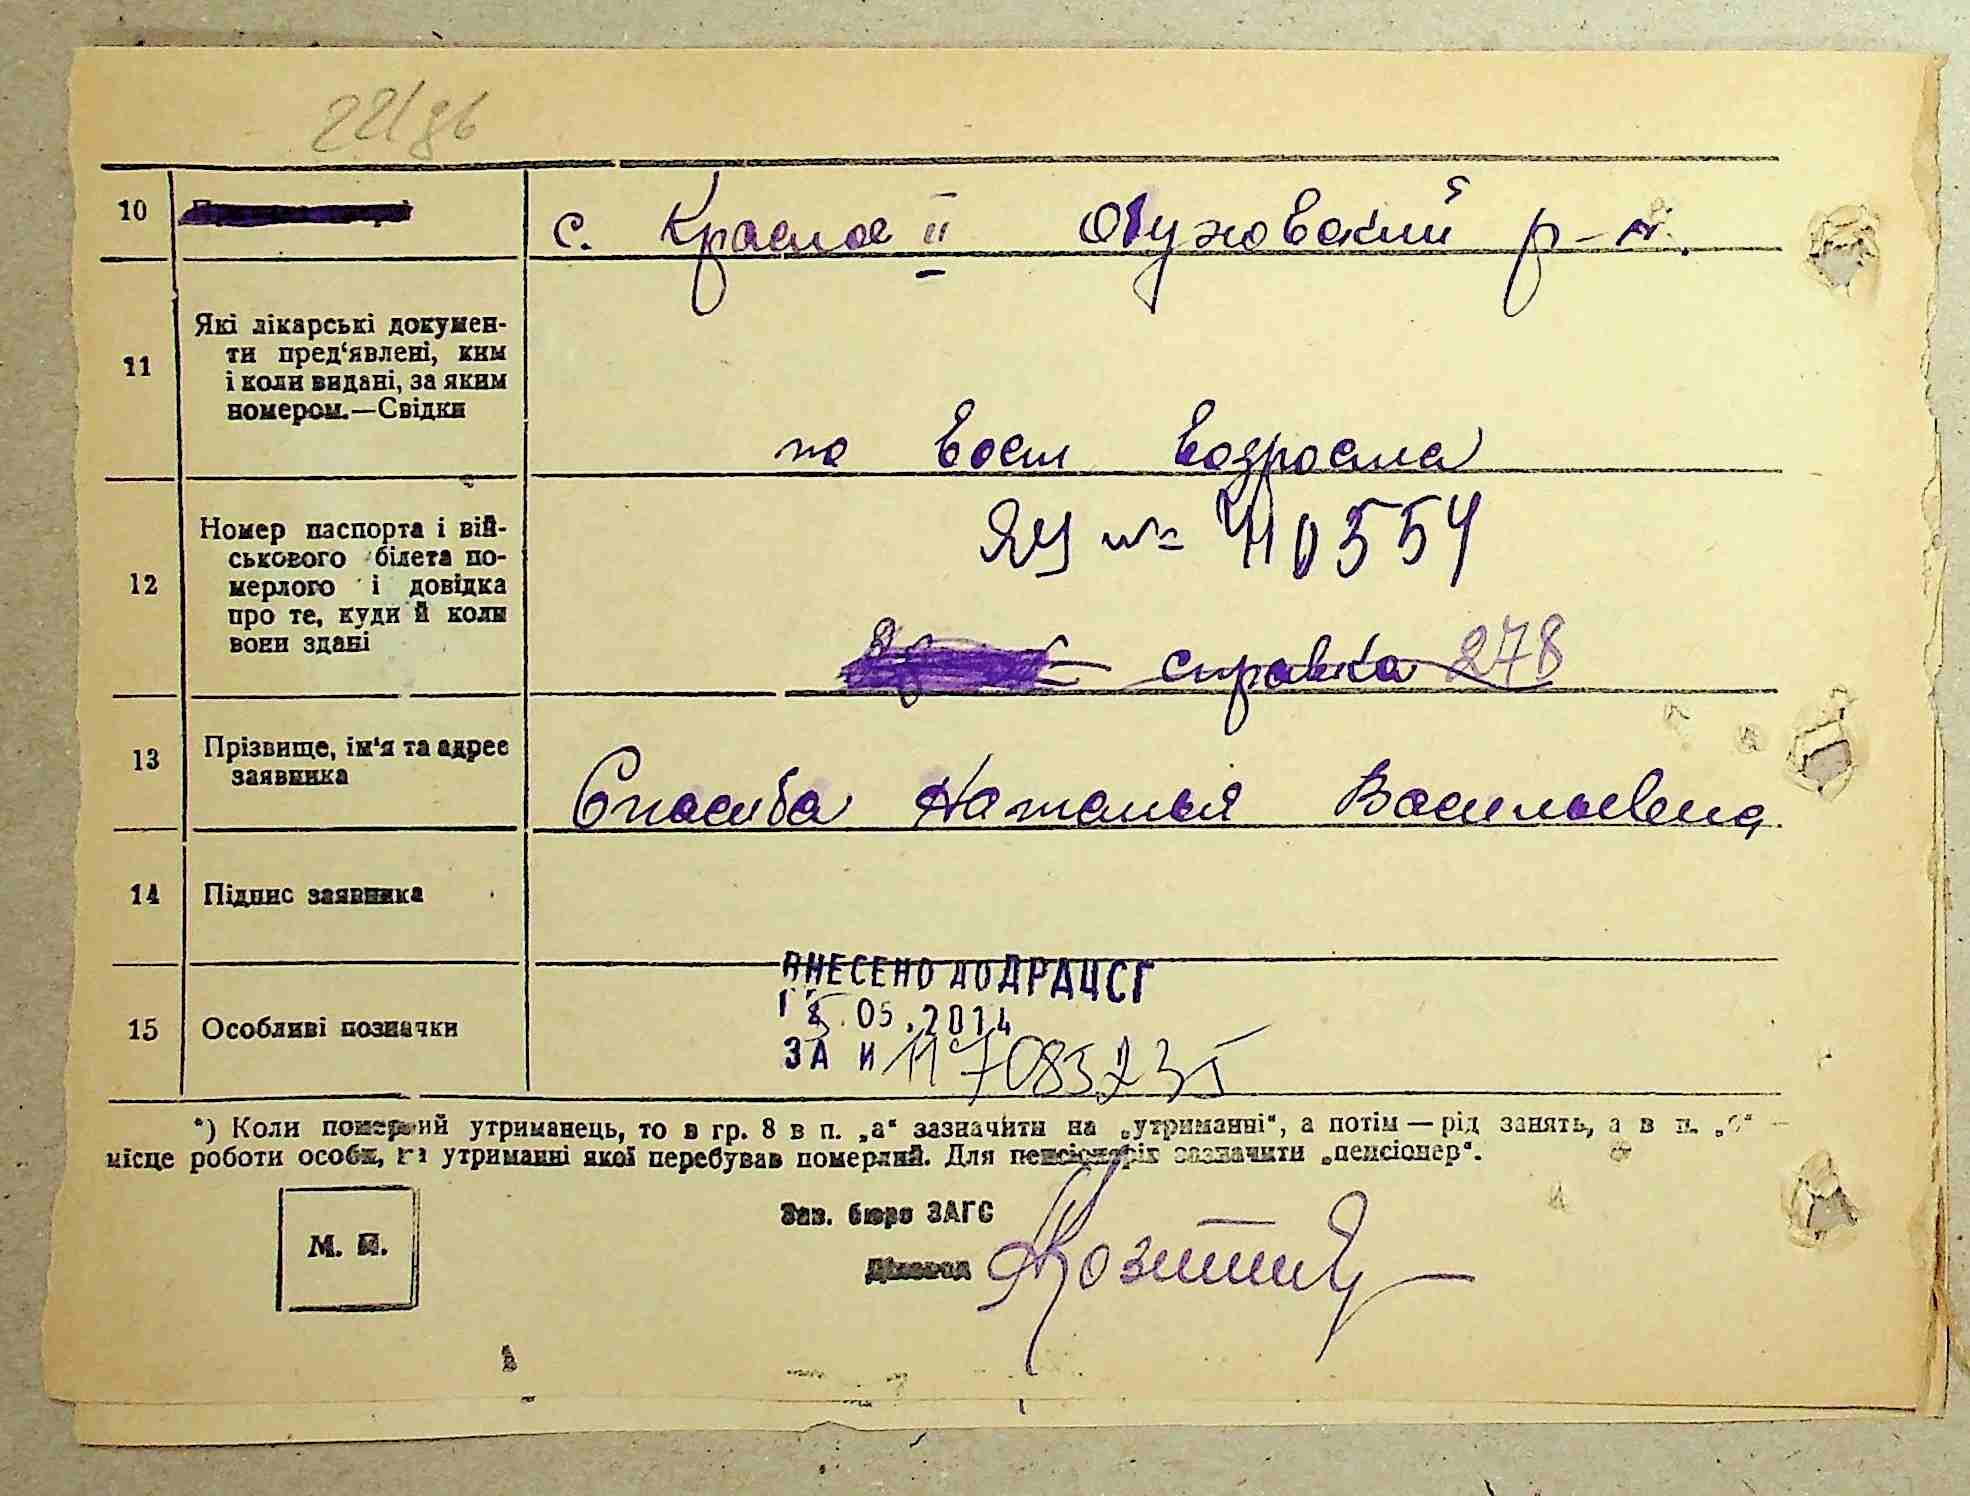 22/86
10 с. Красное II Обуховский р-н.
11 Які лікарські докумен-
ти пред'явлені, ким
і коли видані, за яким
номером.—Свідки
по возраста
12 Номер паспорта і вій-
ськового білета по-
мерлого і довідка
про те, куди й коли
вони здані
ЯЦ № 410554
справка 278
13 Прізвище, ім'я та адрес
заявника
Спасиба Наталья Васильевна
14 Підпис заявника
15 Особливі позначки
ВНЕСЕНО ДО ДРАЦСГ
05.2014
ЗА И 117085235
*) Коли померлий утриманець, то в гр. 8 в п. „а“ зазначити на „утриманні“, а потім — рід занять, а в п. „б“ —
місце роботи особи, на утриманні якої перебував померлий. Для пенсіонерів зазначити „пенсіонер“.
Зав. бюро ЗАГС
М. П.
Діловод